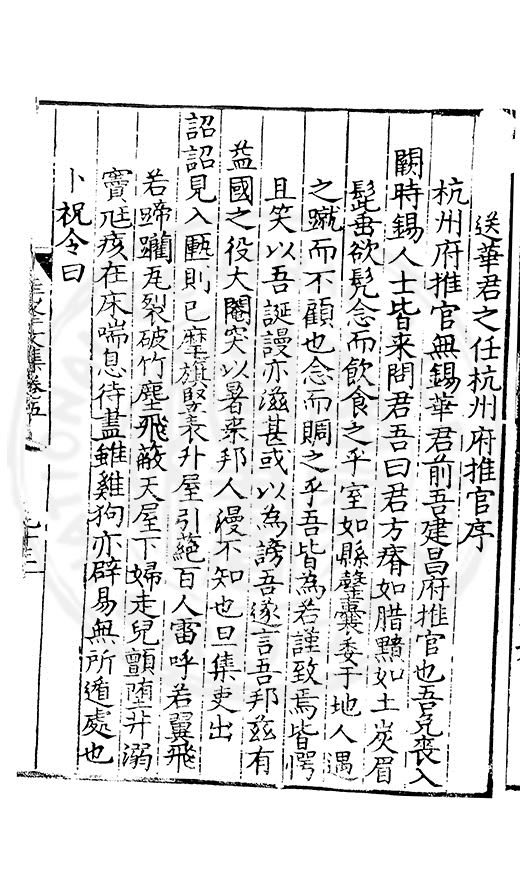 送華君之任杭州府推官序
杭州府推官無錫華君前吾建昌府推官也吾免喪入
闕時錫人士皆来問君吾曰君方瘠如腊黯如土炭眉
髭垂欲髡念而飲食之乎室如縣罄囊委于地人遇
之蹴而不顧也念而賙之乎吾皆為若謹致焉皆愕
且笑以吾誕謾亦滋甚或以為謗吾遂言吾邦兹有
益國之役大閹突以暑来邦人漫不知也旦集吏出
詔詔見入甌則已麾旗竪表升屋引絙百人雷呼若翼飛
若蹄躪瓦裂破竹塵飛蔽天屋下婦走兒顫堕井溺
竇尫痎在床喘息待盡雖雞狗亦辟易無所遁處也
卜祝令曰